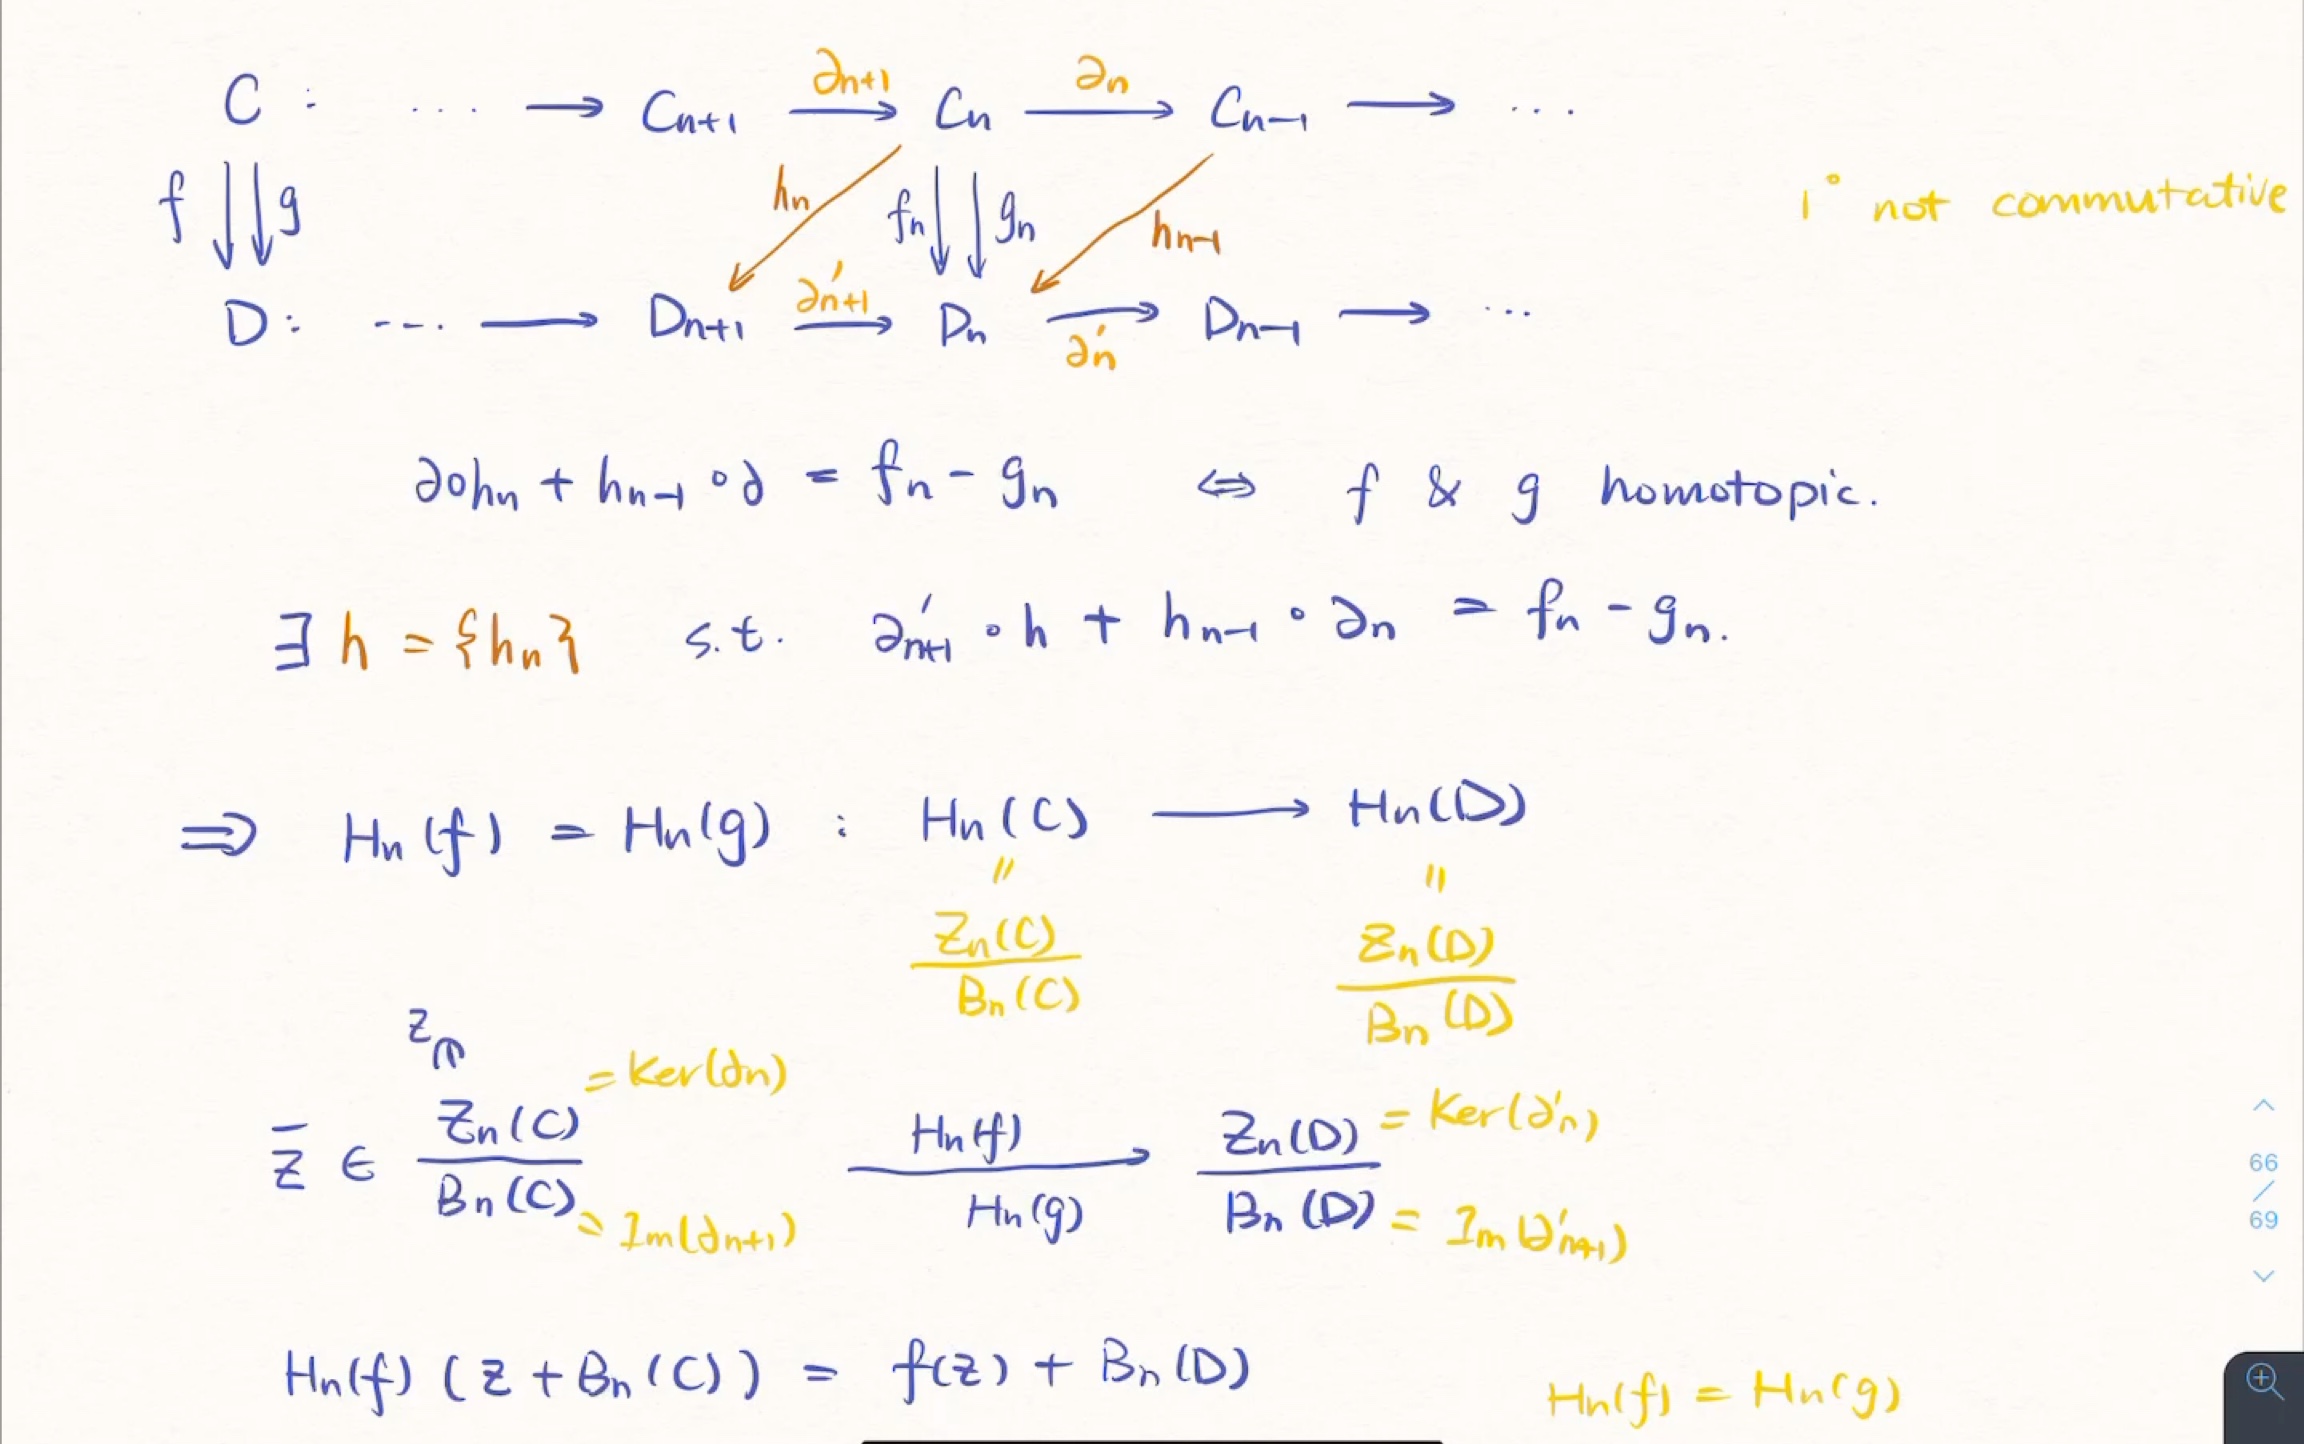 C : ··· → Cn+1 →∂n+1 Cn →∂n Cn-1 → ···
f g hn fn gn hn-1
1° not commutative
D : ···· → Dn+1 →∂'n+1 Dn →∂'n Dn-1 → ···
∂∘hn + hn-1∘∂ = fn - gn ⇔ f & g homotopic.
∃ h = {hn} s.t. ∂'n+1 ∘ h + hn-1 ∘ ∂n = fn - gn.
⇒ Hn(f) = Hn(g) : Hn(C) → Hn(D)
" "
Zn(C) Zn(D)
Bn(C) Bn(D)
z ∈
= Ker(∂n) = Ker(∂'n)
z̄ ∈ Zn(C) Hn(f) Zn(D)
Bn(C) Hn(g) Bn(D)
= Im(∂n+1) = Im(∂'n+1)
Hn(f) (z + Bn(C)) = f(z) + Bn(D)
Hn(f) = Hn(g)
66
/
69